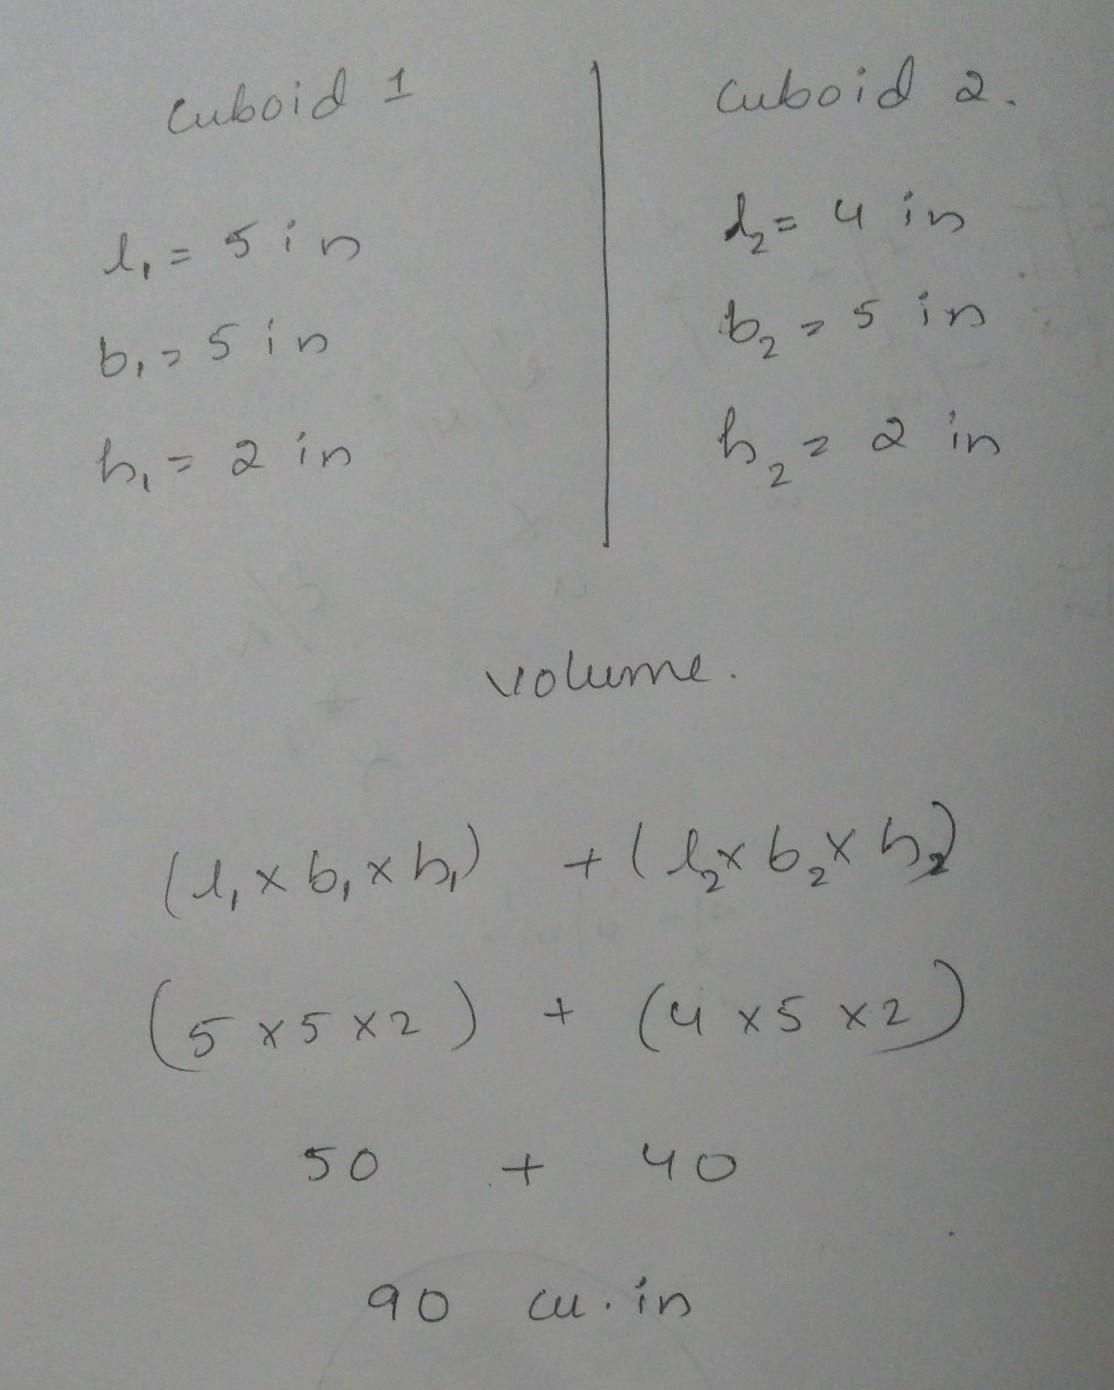 Cuboid 1
l₁ = 5 in
b₁ = 5 in
h₁ = 2 in
Cuboid 2.
l₂ = 4 in
b₂ = 5 in
h₂ = 2 in
volume.
(l₁ × b₁ × h₁) + (l₂ × b₂ × h₂)
(5 × 5 × 2) + (4 × 5 × 2)
50 + 40
90 cu. in